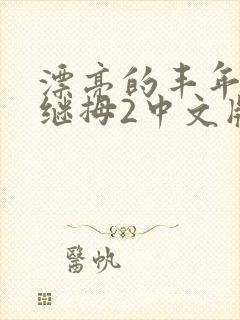 漂亮的丰年
继拇2中文版
醫帆